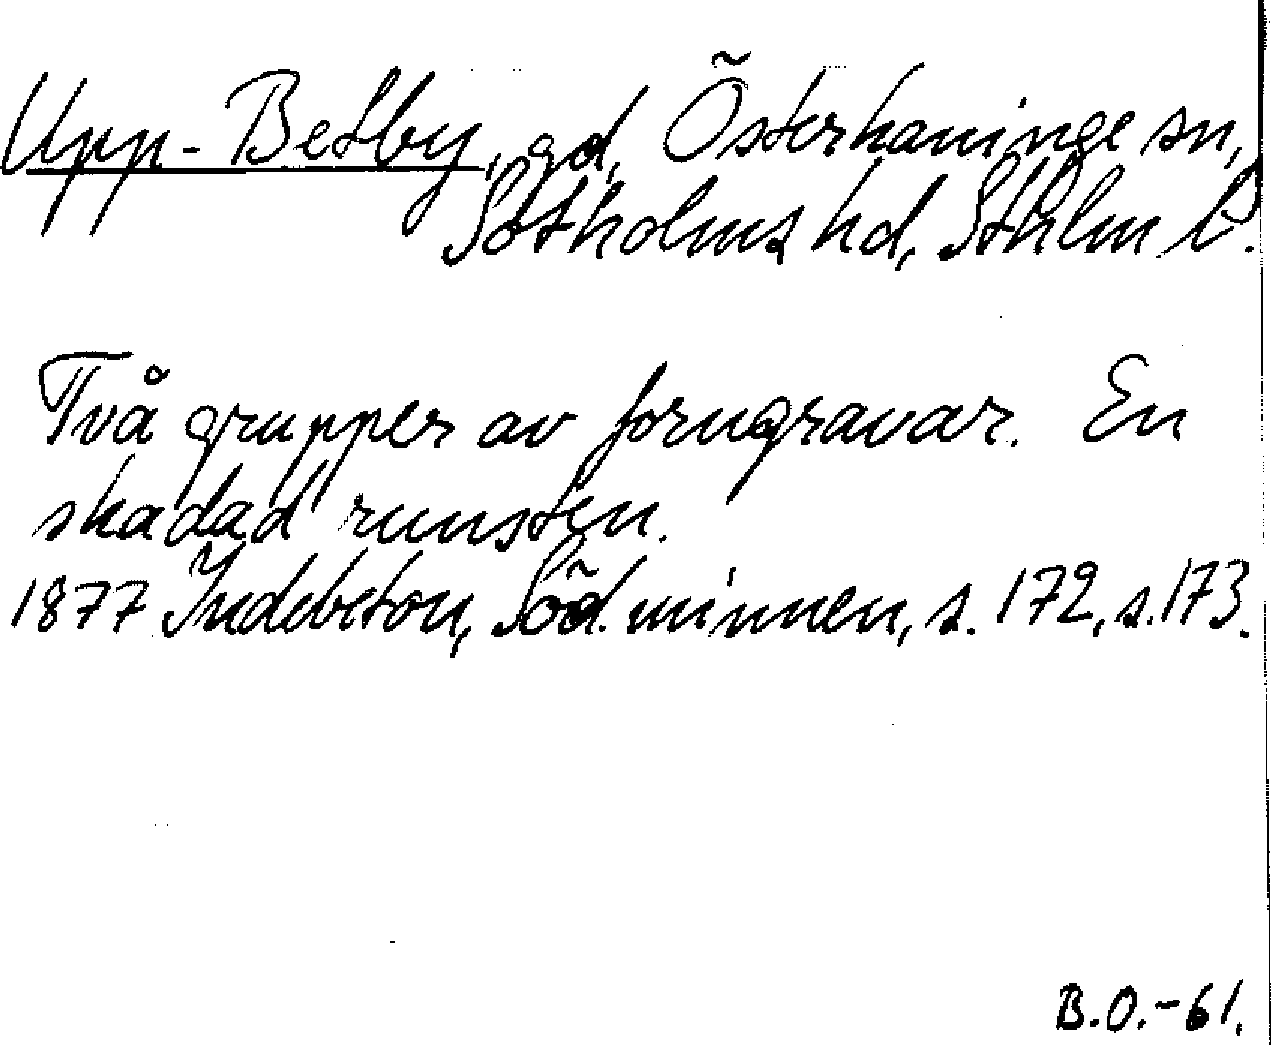 Upp-Betby, gd, Österhaninge sn,
Sotholms hd, Sthlm l.
Två grupper av forngravar. En
skadad runsten.
1877 Indebetou, Söd. minnen, s. 172, s. 173.
B.O.-61.